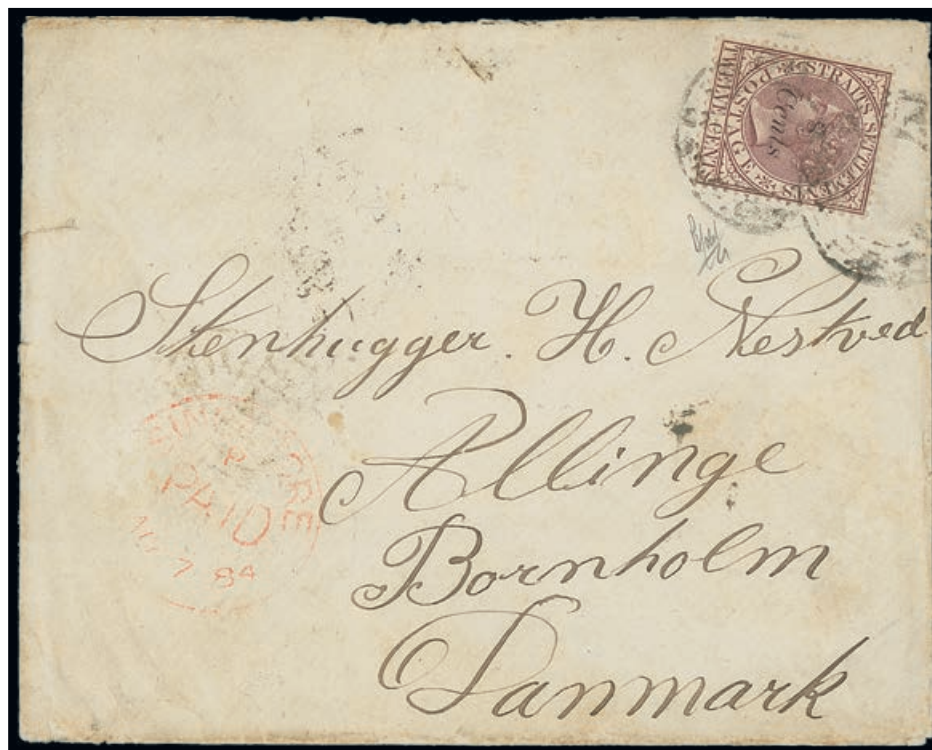 STRAITS SETTLEMENTS
POSTAGE
TWELVE CENTS
8
Cents
Stenhugger. H. Nestved
Allinge
Bornholm
Danmark
SINGAPORE
P
PAID
7 84